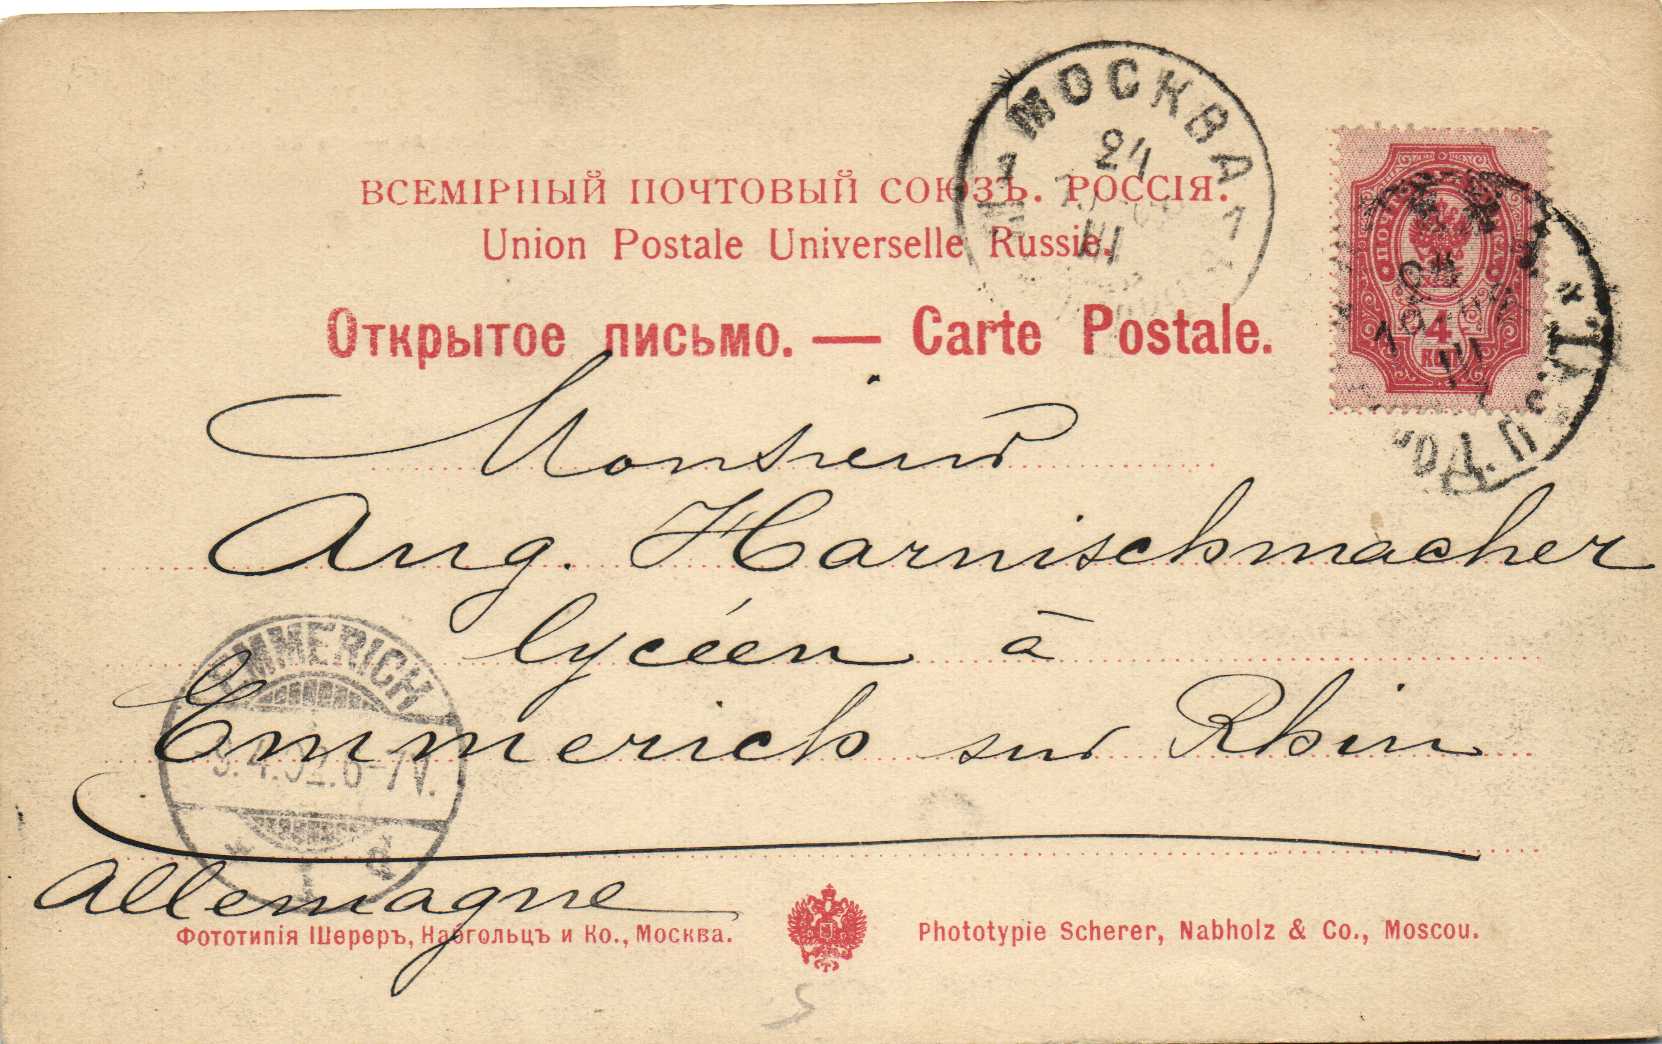 МОСКВА
24
III
ВСЕМІРНЫЙ ПОЧТОВЫЙ СОЮЗЪ. РОССІЯ.
Union Postale Universelle Russie.
Открытое письмо. — Carte Postale.
4
Monsieur
Aug. Harnischmacher
lycéen à
Emmerich sur Rhin
Allemagne
EMMERICH
Фототипія Шереръ, Набгольцъ и Ко., Москва.
Phototypie Scherer, Nabholz & Co., Moscou.